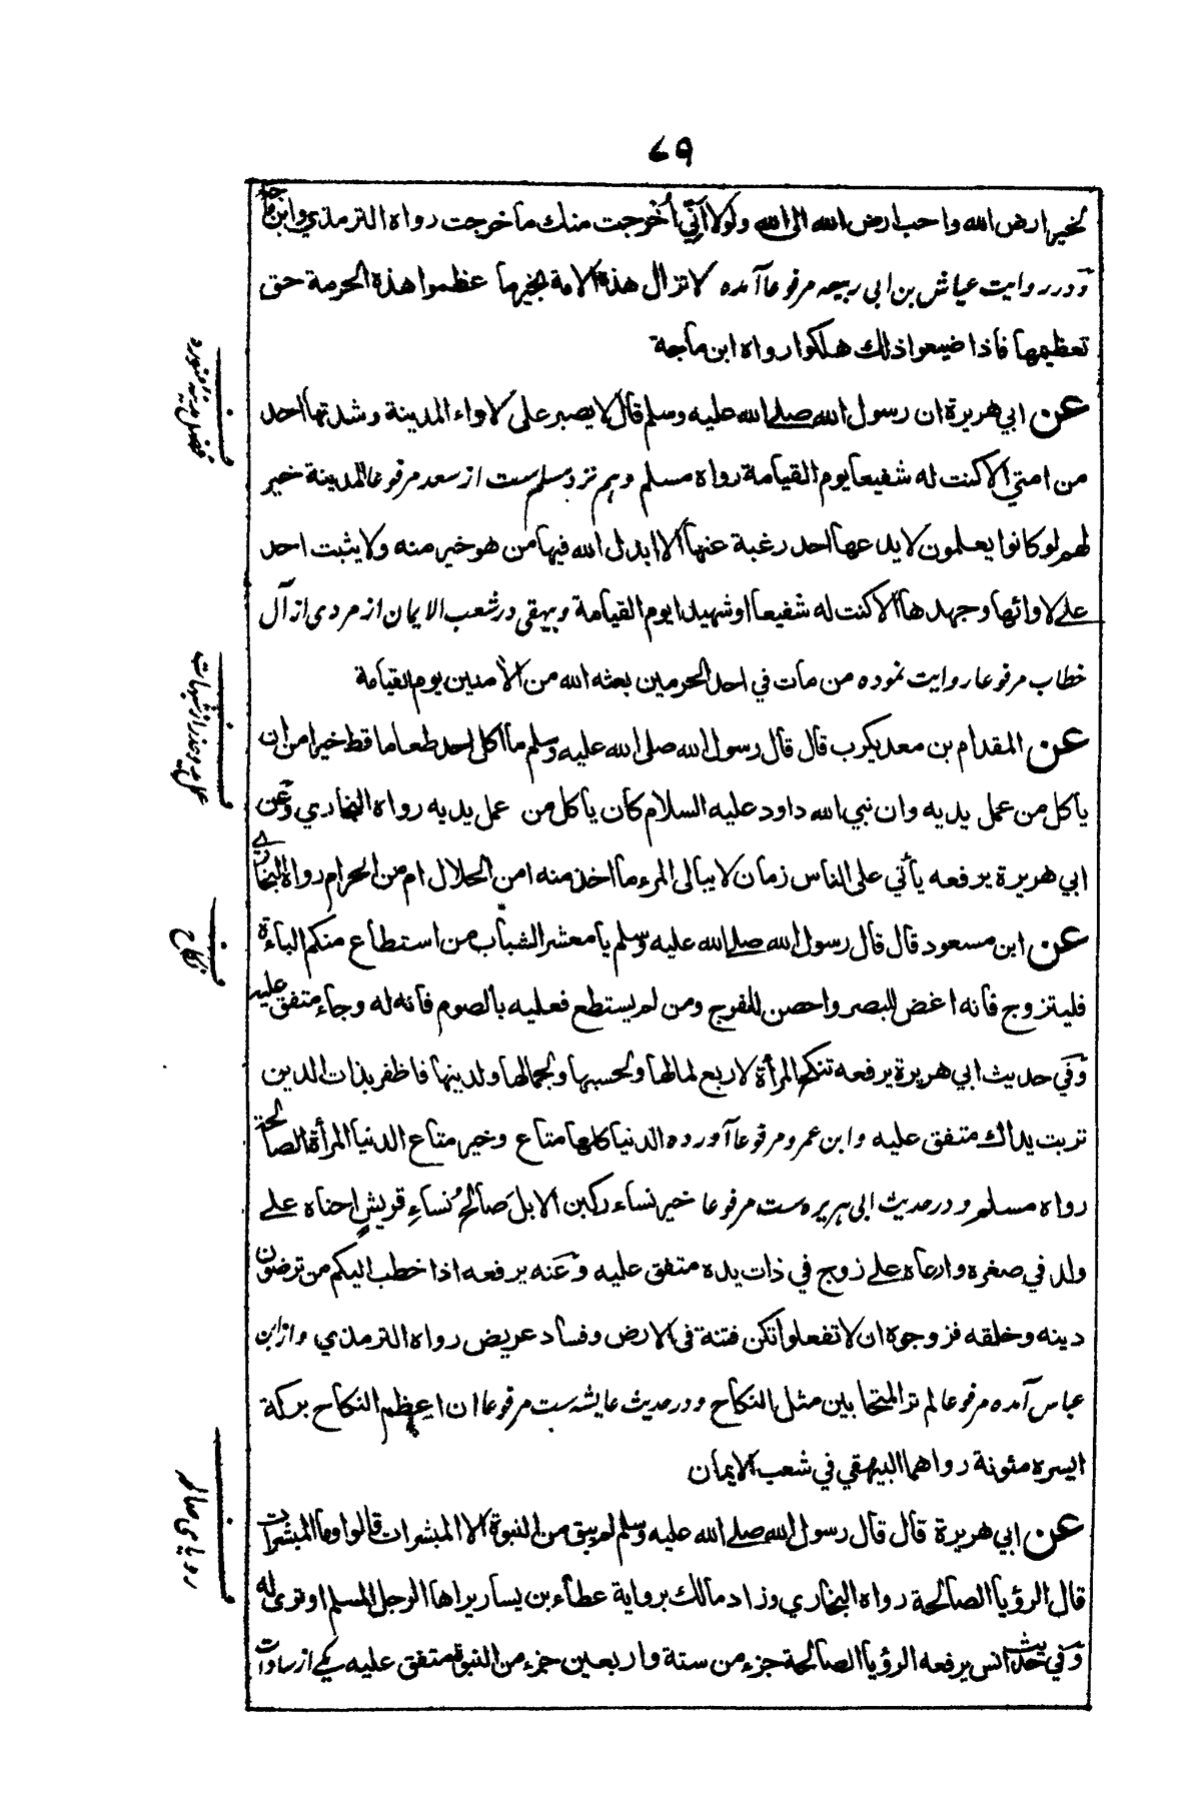 ٧٩
لخير ارض الله واحب ارض الله الى الله ولولا أنّي أُخرجت منك ما خرجت رواه الترمذي وابن ماجة
ودر روايت عياش بن ابى ربيعه مرفوعا آمده لا تزال هذه الامة بخير ما عظموا هذه الحرمة حق
تعظيمها فاذا ضيعوا ذلك هلكوا رواه ابن ماجة
عن ابي هريرة ان رسول الله صلے الله عليه وسلم قال لا يصبر على لاواء المدينة وشدتها احد
من امتي الا كنت له شفيعا يوم القيامة رواه مسلم وهم نزد مسلم ست از سعد مرفوعا المدينة خير
لهم لو كانوا يعلمون لا يدعها احد رغبة عنها الا ابدل الله فيها من هو خير منه ولا يثبت احد
علے لاوائها وجهدها الا كنت له شفيعا او شهيدا يوم القيامة وبيهقى در شعب الايمان از مردى از آل
خطاب مرفوعا روايت نموده من مات في احد الحرمين بعثه الله من الآمنين يوم القيامة
عن المقدام بن معديكرب قال قال رسول الله صلى الله عليه وسلم ما اكل احد طعاما قط خيرا من ان
يأكل من عمل يديه وان نبي الله داود عليه السلام كان يأكل من عمل يديه رواه البخاري وعن
ابي هريرة يرفعه يأتي على الناس زمان لا يبالى المرء ما اخذ منه امن الحلال ام من الحرام رواه البخاري
عن ابن مسعود قال قال رسول الله صلے الله عليه وسلم يا معشر الشباب من استطاع منكم الباءة
فليتزوج فانه اغض للبصر واحصن للفرج ومن لم يستطع فعليه بالصوم فانه له وجاء متفق عليه
وفي حديث ابي هريرة يرفعه تنكح المرأة لاربع لمالها ولحسبها ولجمالها ولدينها فاظفر بذات الدين
تربت يداك متفق عليه وابن عمرو مرفوعا آورده الدنيا كلها متاع وخير متاع الدنيا المرأة الصالحة
رواه مسلم ودر حديث ابى هريره ست مرفوعا خير نساء ركبن الابل صالحُ نساءِ قريشٍ احناه علے
ولد في صغره وارعاه علے زوج في ذات يده متفق عليه وعنه يرفعه اذا خطب اليكم من ترضون
دينه وخلقه فزوجوه ان لا تفعلوا تكن فتنة فى الارض وفساد عريض رواه الترمذي واز ابن
عباس آمده مرفوعا لم تر المتحابين مثل النكاح ودر حديث عايشه ست مرفوعا ان اعظم النكاح بركة
ايسره مئونة رواهما البيهقي في شعب الايمان
عن ابي هريرة قال قال رسول الله صلے الله عليه وسلم لم يبق من النبوة الا المبشرات قالوا وما المبشرات
قال الرؤيا الصالحة رواه البخاري وزاد مالك برواية عطاء بن يسار يراها الرجل المسلم او ترى له
وفي حديث انس يرفعه الرؤيا الصالحة جزء من ستة واربعين جزء من النبوة متفق عليه يكے از سادات
ف
فضل مدينه منوره
ف
ف
نكاح
ف
روياى صالحه